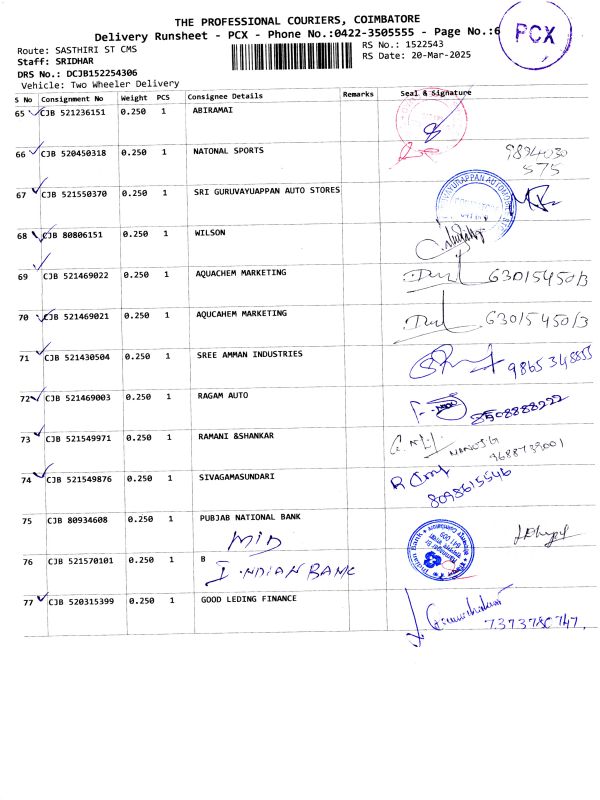 THE PROFESSIONAL COURIERS, COIMBATORE
Delivery Runsheet - PCX - Phone No.:0422-3505555 - Page No.:6
PCX
Route: SASTHIRI ST CMS
RS No.: 1522543
Staff: SRIDHAR
RS Date: 20-Mar-2025
DRS No.: DCJB152254306
Vehicle: Two Wheeler Delivery
S No Consignment No Weight PCS Consignee Details Remarks Seal & Signature
65 CJB 521236151 0.250 1 ABIRAMAI
66 CJB 520450318 0.250 1 NATONAL SPORTS 9894030
575
67 CJB 521550370 0.250 1 SRI GURUVAYUAPPAN AUTO STORES
68 CJB 80806151 0.250 1 WILSON
69 CJB 521469022 0.250 1 AQUACHEM MARKETING 6301545013
70 CJB 521469021 0.250 1 AQUCAHEM MARKETING 6301545013
71 CJB 521430504 0.250 1 SREE AMMAN INDUSTRIES 9865348853
72 CJB 521469003 0.250 1 RAGAM AUTO 8508888222
73 CJB 521549971 0.250 1 RAMANI &SHANKAR
9688739001
74 CJB 521549876 0.250 1 SIVAGAMASUNDARI
8098615546
75 CJB 80934608 0.250 1 PUBJAB NATIONAL BANK
MID
76 CJB 521570101 0.250 1 B
INDIAN BANK
77 CJB 520315399 0.250 1 GOOD LEDING FINANCE
7373780747